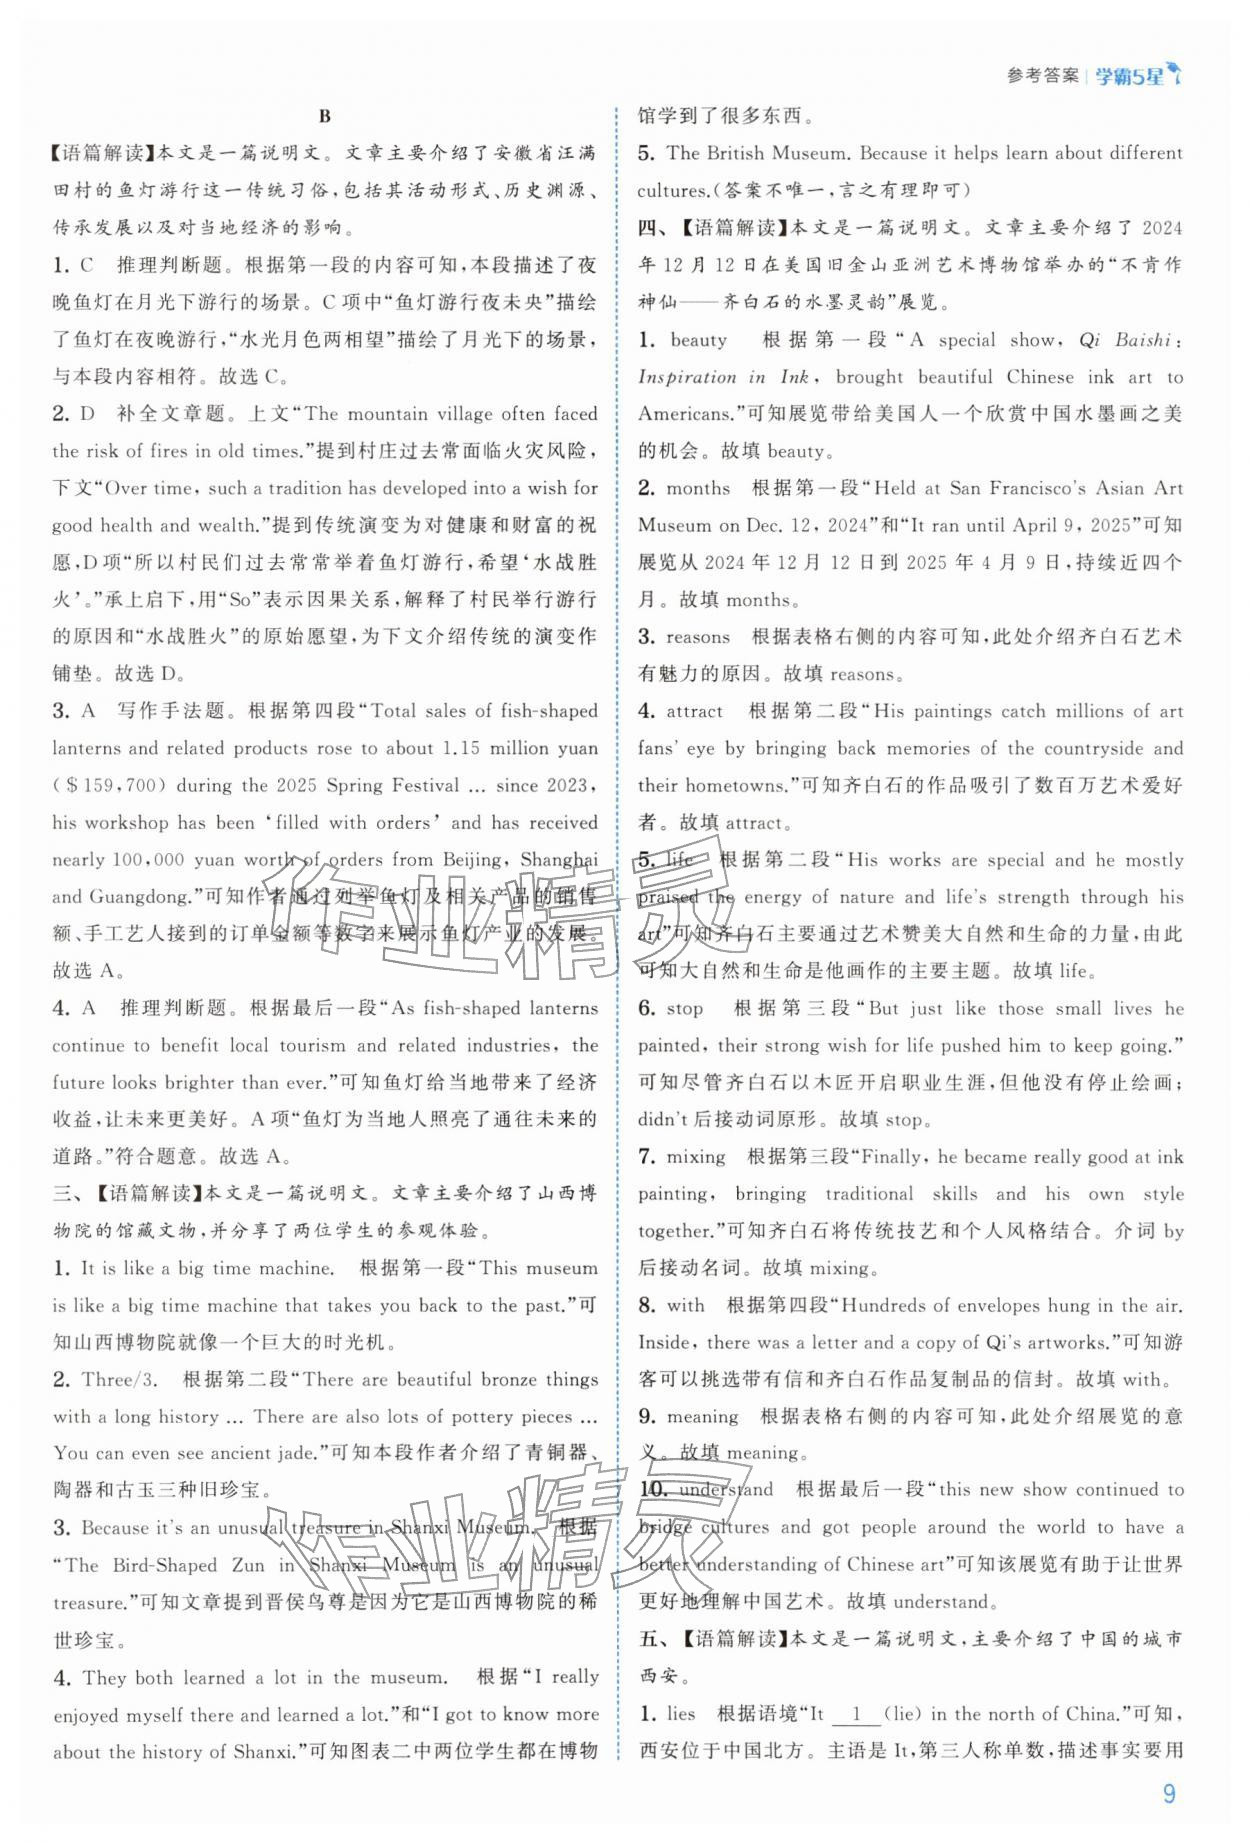 参考答案 | 学霸5星
B
【语篇解读】本文是一篇说明文。文章主要介绍了安徽省汪满
田村的鱼灯游行这一传统习俗,包括其活动形式、历史渊源、
传承发展以及对当地经济的影响。
1. C 推理判断题。根据第一段的内容可知,本段描述了夜
晚鱼灯在月光下游行的场景。C 项中“鱼灯游行夜未央”描绘
了鱼灯在夜晚游行,“水光月色两相望”描绘了月光下的场景,
与本段内容相符。故选 C。
2. D 补全文章题。上文“The mountain village often faced
the risk of fires in old times.”提到村庄过去常面临火灾风险,
下文“Over time, such a tradition has developed into a wish for
good health and wealth.”提到传统演变为对健康和财富的祝
愿,D项“所以村民们过去常常举着鱼灯游行,希望‘水战胜
火’。”承上启下,用“So”表示因果关系,解释了村民举行游行
的原因和“水战胜火”的原始愿望,为下文介绍传统的演变作
铺垫。故选 D。
3. A 写作手法题。根据第四段“Total sales of fish-shaped
lanterns and related products rose to about 1.15 million yuan
($159,700) during the 2025 Spring Festival ... since 2023,
his workshop has been ‘filled with orders’ and has received
nearly 100,000 yuan worth of orders from Beijing, Shanghai
and Guangdong.”可知作者通过列举鱼灯及相关产品的销售
额、手工艺人接到的订单金额等数字来展示鱼灯产业的发展。
故选 A。
4. A 推理判断题。根据最后一段“As fish-shaped lanterns
continue to benefit local tourism and related industries, the
future looks brighter than ever.”可知鱼灯给当地带来了经济
收益,让未来更美好。A 项“鱼灯为当地人照亮了通往未来的
道路。”符合题意。故选 A。
三、【语篇解读】本文是一篇说明文。文章主要介绍了山西博
物院的馆藏文物,并分享了两位学生的参观体验。
1. It is like a big time machine. 根据第一段“This museum
is like a big time machine that takes you back to the past.”可
知山西博物院就像一个巨大的时光机。
2. Three/3. 根据第二段“There are beautiful bronze things
with a long history ... There are also lots of pottery pieces ...
You can even see ancient jade.”可知本段作者介绍了青铜器、
陶器和古玉三种旧珍宝。
3. Because it's an unusual treasure in Shanxi Museum. 根据
“The Bird-Shaped Zun in Shanxi Museum is an unusual
treasure.”可知文章提到晋侯鸟尊是因为它是山西博物院的稀
世珍宝。
4. They both learned a lot in the museum. 根据“I really
enjoyed myself there and learned a lot.”和“I got to know more
about the history of Shanxi.”可知图表二中两位学生都在博物
馆学到了很多东西。
5. The British Museum. Because it helps learn about different
cultures.(答案不唯一,言之有理即可)
四、【语篇解读】本文是一篇说明文。文章主要介绍了 2024
年 12 月 12 日在美国旧金山亚洲艺术博物馆举办的“不肯作
神仙——齐白石的水墨灵韵”展览。
1. beauty 根据第一段“A special show, Qi Baishi:
Inspiration in Ink, brought beautiful Chinese ink art to
Americans.”可知展览带给美国人一个欣赏中国水墨画之美
的机会。故填 beauty。
2. months 根据第一段“Held at San Francisco's Asian Art
Museum on Dec. 12, 2024”和“It ran until April 9, 2025”可知
展览从 2024 年 12 月 12 日到 2025 年 4 月 9 日,持续近四个
月。故填 months。
3. reasons 根据表格右侧的内容可知,此处介绍齐白石艺术
有魅力的原因。故填 reasons。
4. attract 根据第二段“His paintings catch millions of art
fans' eye by bringing back memories of the countryside and
their hometowns.”可知齐白石的作品吸引了数百万艺术爱好
者。故填 attract。
5. life 根据第二段“His works are special and he mostly
praised the energy of nature and life's strength through his
art”可知齐白石主要通过艺术赞美大自然和生命的力量,由此
可知大自然和生命是他画作的主要主题。故填 life。
6. stop 根据第三段“But just like those small lives he
painted, their strong wish for life pushed him to keep going.”
可知尽管齐白石以木匠开启职业生涯,但他没有停止绘画;
didn't 后接动词原形。故填 stop。
7. mixing 根据第三段“Finally, he became really good at ink
painting, bringing traditional skills and his own style
together.”可知齐白石将传统技艺和个人风格结合。介词 by
后接动名词。故填 mixing。
8. with 根据第四段“Hundreds of envelopes hung in the air.
Inside, there was a letter and a copy of Qi's artworks.”可知游
客可以挑选带有信和齐白石作品复制品的信封。故填 with。
9. meaning 根据表格右侧的内容可知,此处介绍展览的意
义。故填 meaning。
10. understand 根据最后一段“this new show continued to
bridge cultures and got people around the world to have a
better understanding of Chinese art”可知该展览有助于让世界
更好地理解中国艺术。故填 understand。
五、【语篇解读】本文是一篇说明文,主要介绍了中国的城市
西安。
1. lies 根据语境“It 1 (lie) in the north of China.”可知,
西安位于中国北方。主语是 It,第三人称单数,描述事实要用
作业精灵
作业精灵
9